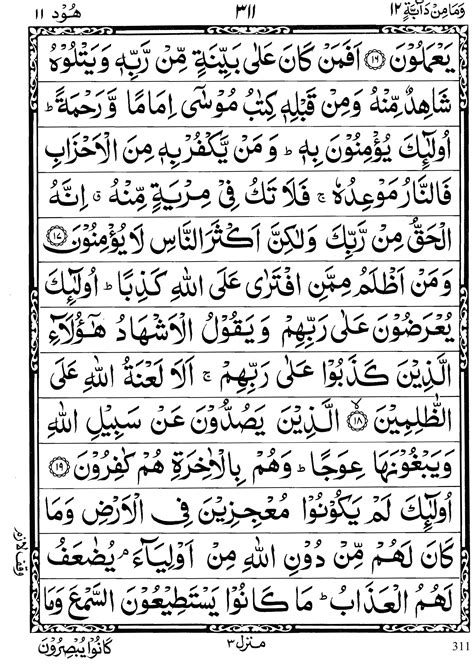 وَمَا مِنْ دَآبَّةٍ ١٢ ٣١١ هُوْد ١١
يَعْمَلُوْنَ ۝١٦ اَفَمَنْ كَانَ عَلٰى بَيِّنَةٍ مِّنْ رَّبِّهٖ وَيَتْلُوْهُ
شَاهِدٌ مِّنْهُ وَمِنْ قَبْلِهٖ كِتٰبُ مُوْسٰٓى اِمَامًا وَّرَحْمَةً ؕ
اُولٰٓئِكَ يُؤْمِنُوْنَ بِهٖ ؕ وَمَنْ يَّكْفُرْ بِهٖ مِنَ الْاَحْزَابِ
فَالنَّارُ مَوْعِدُهٗ ۚ فَلَا تَكُ فِيْ مِرْيَةٍ مِّنْهُ ۗ اِنَّهُ
الْحَقُّ مِنْ رَّبِّكَ وَلٰكِنَّ اَكْثَرَ النَّاسِ لَا يُؤْمِنُوْنَ ۝١٧
وَمَنْ اَظْلَمُ مِمَّنِ افْتَرٰى عَلَى اللّٰهِ كَذِبًا ؕ اُولٰٓئِكَ
يُعْرَضُوْنَ عَلٰى رَبِّهِمْ وَيَقُوْلُ الْاَشْهَادُ هٰٓؤُلَآءِ
الَّذِيْنَ كَذَبُوْا عَلٰى رَبِّهِمْ ۚ اَلَا لَعْنَةُ اللّٰهِ عَلَى
الظّٰلِمِيْنَ ۝١٨ۙ الَّذِيْنَ يَصُدُّوْنَ عَنْ سَبِيْلِ اللّٰهِ
وَيَبْغُوْنَهَا عِوَجًا ؕ وَهُمْ بِالْاٰخِرَةِ هُمْ كٰفِرُوْنَ ۝١٩
اُولٰٓئِكَ لَمْ يَكُوْنُوْا مُعْجِزِيْنَ فِي الْاَرْضِ وَمَا
كَانَ لَهُمْ مِّنْ دُوْنِ اللّٰهِ مِنْ اَوْلِيَآءَ ۘ يُضٰعَفُ
لَهُمُ الْعَذَابُ ؕ مَا كَانُوْا يَسْتَطِيْعُوْنَ السَّمْعَ وَمَا
وقف لازم
منزل ٣
كَانُوْا يُبْصِرُوْنَ
311